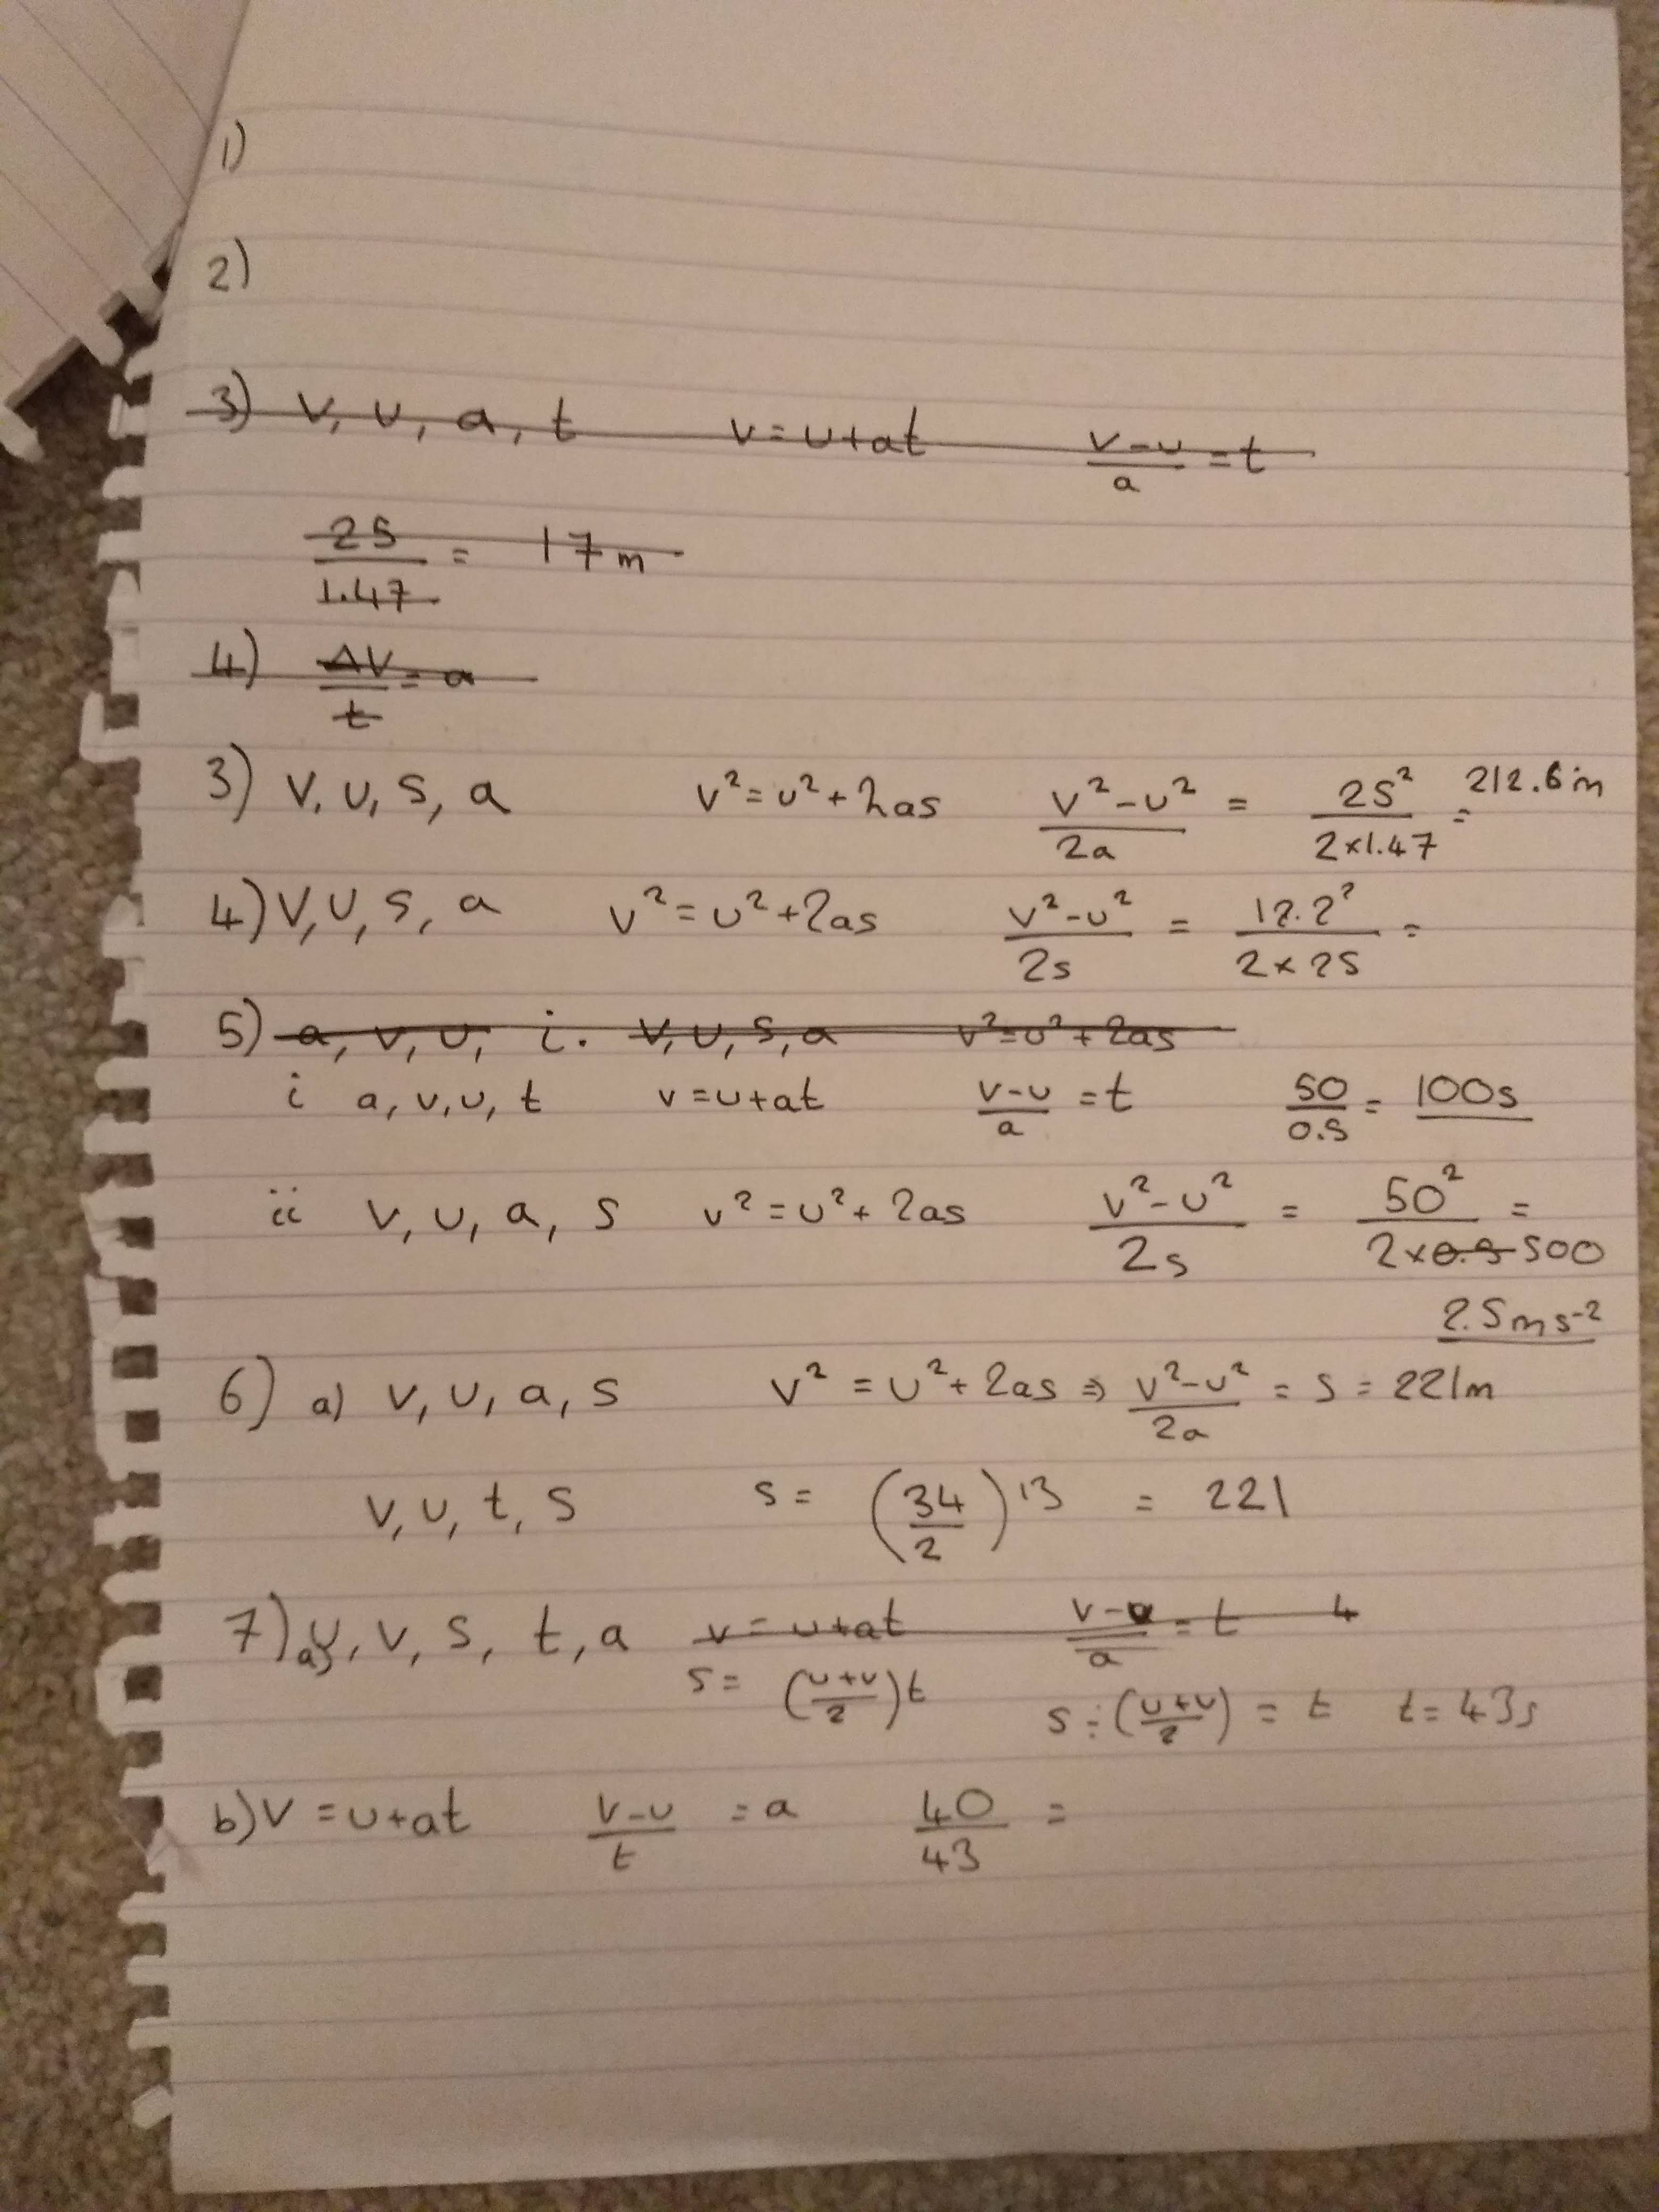 1)
2)
3) V, U, a, t   V = U + at   V - U / a = t
25 / 1.47 = 17m
4) ΔV / t = a
3) V, U, S, a   V² = U² + 2as   V² - U² / 2a = 25² / 2×1.47 = 212.6m
4) V, U, S, a   V² = U² + 2as   V² - U² / 2s = 12.2² / 2×25 =
5) a, V, U, i. V, U, S, a   V² = U² + 2as
i   a, V, U, t   V = U + at   V - U / a = t   50 / 0.5 = 100s
ii   V, U, a, S   V² = U² + 2as   V² - U² / 2s = 50² / 2×0.5 500 =
2.5ms⁻²
6) a) V, U, a, S   V² = U² + 2as ⇒ V² - U² / 2a = S = 221m
V, U, t, S   S = (34 / 2) 13 = 221
7) a) U, V, S, t, a   V = U + at   V - U / a = t   4
S = (U + V / 2) t   S ÷ (U + V / 2) = t   t = 43s
b) V = U + at   V - U / t = a   40 / 43 =